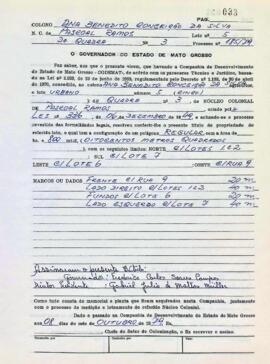 PAG. 033
COLONO ANA BENEDITO CONCEIÇÃO DA SILVA
N. C. de PASCOAL RAMOS Lote 5
2ª QUADRA Nº 3 Processo nº 185/79
O GOVERNADOR DO ESTADO DE MATO GROSSO
Faz saber, aos que o presente virem, que havendo a Companhia de Desenvolvimento
do Estado de Mato Grosso - CODEMAT -, de acordo com os pareceres Técnico e Jurídico, basea-
do na Lei nº de de junho de 1969, de de abril
de 1970, concedido, ao colono ANA BENEDITO CONCEIÇÃO DA SILVA
o lote URBANO número 5 (CINCO)
QUADRA Nº 3, do NÚCLEO COLONIAL
de PASCOAL RAMOS criado pela
LEI nº 336 de 06 de DEZEMBRO de 1949, e achando-se o processo
revestido das formalidades legais, resolveu conferir-lhe o presente título de propriedade
do referido lote, o qual tem a configuração de um polígono REGULAR com a área de
800 m2, (OITOCENTOS METROS QUADRADOS
) com os seguintes limites: NORTE C/LOTES 1 e 2
SUL C/LOTE 7
LESTE C/LOTE 6 OESTE C/RUA 9
MARCOS OU DADOS FRENTE C/RUA 9 20 m
LADO DIREITO C/LOTES 1 e 3 40 m
FUNDOS C/LOTE 6 20 m
LADO ESQUERDO C/LOTE 7 40 m
Assinaram o presente título:
Governador: Frederico Carlos Soares Campos
Diretor Presidente: Gabriel Júlio de Mattos Müller
Como tudo consta do memorial e planta que foram arquivados nesta Companhia, juntamente
com o processo de medição e loteamento do referido Núcleo Colonial.
Dado e passado na Companhia de Desenvolvimento do Estado de Mato Grosso
aos 08 dias do mês de OUTUBRO de 1979. Eu,
Chefe do Setor de Colonização, o fiz escrever e assino.